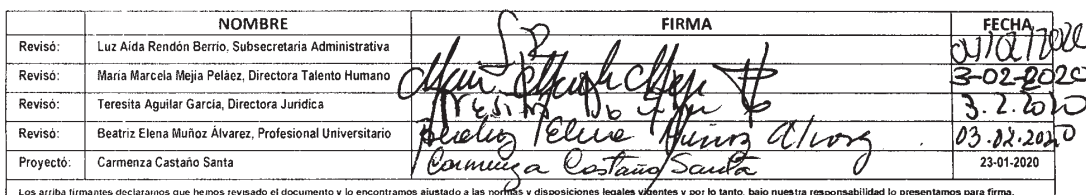 NOMBRE FIRMA FECHA
Revisó: Luz Aída Rendón Berrio, Subsecretaria Administrativa 04/02/2020
Revisó: María Marcela Mejía Peláez, Directora Talento Humano 3-02-2020
Revisó: Teresita Aguilar García, Directora Jurídica Teresita 3.2.2020
Revisó: Beatriz Elena Muñoz Álvarez, Profesional Universitario Beatriz Elena Muñoz Alvarez 03.02.2020
Proyectó: Carmenza Castaño Santa Carmenza Castaño Santa 23-01-2020
Los arriba firmantes declaramos que hemos revisado el documento y lo encontramos ajustado a las normas y disposiciones legales vigentes y por lo tanto, bajo nuestra responsabilidad lo presentamos para firma.